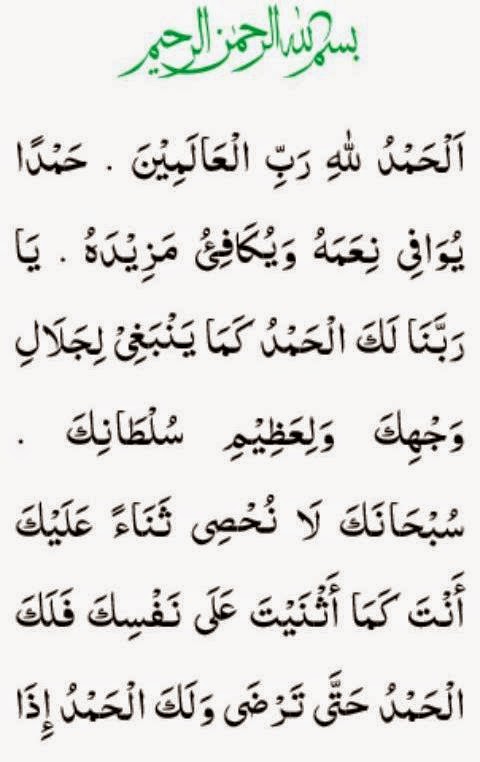 بسم الله الرحمن الرحيم
اَلْحَمْدُ لِلّٰهِ رَبِّ الْعَالَمِيْنَ . حَمْدًا
يُوَافِى نِعَمَهُ وَيُكَافِئُ مَزِيْدَهُ . يَا
رَبَّنَا لَكَ الْحَمْدُ كَمَا يَنْبَغِيْ لِجَلَالِ
وَجْهِكَ وَلِعَظِيْمِ سُلْطَانِكَ .
سُبْحَانَكَ لَا نُحْصِى ثَنَاءً عَلَيْكَ
أَنْتَ كَمَا أَثْنَيْتَ عَلَى نَفْسِكَ فَلَكَ
الْحَمْدُ حَتَّى تَرْضَى وَلَكَ الْحَمْدُ إِذَا